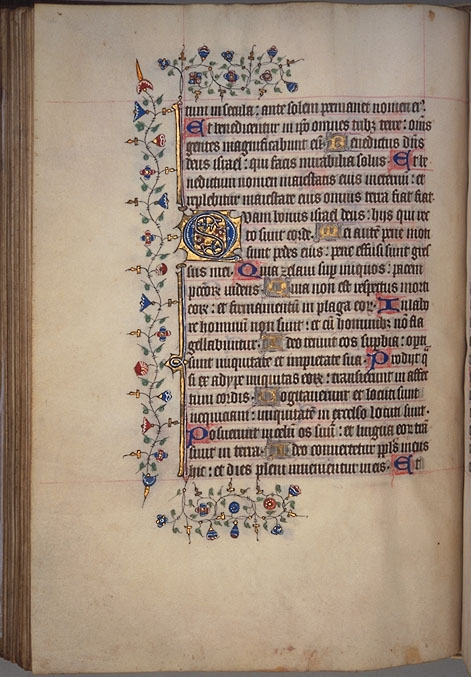 tum in secula: ante solem permanet nomen eiꝰ.
Et benedicentur in ip̄o omnes tribꝫ terre: om̄s
gentes magnificabunt eū. Benedictus dn̄s
deus israel: qui facit mirabilia solus. Et be
nedictum nomen maiestatis eius ineternū: et
replebitur maiestate eius omnis terra fiat fiat.
Quam bonus israel deus: hijs qui rec
to sunt corde. Mei autē pene moti
sunt pedes: pene effusi sunt gres
sus mei. Quia zelaui sup iniquos: pacem
pctōꝝ uidens. Quia non est respectus morti
eoꝝ: et firmamentū in plaga eoꝝ. In labo
re hominū non sunt: et cū hominibꝫ nō fla
gellabuntur. Ideo tenuit eos supbia: opti
sunt iniquitate et impietate sua. Prodijt q
si ex adype iniquitas eoꝝ: transierunt in affec
tum cordis. Cogitauerunt et locuti sunt
nequitiam: iniquitatē in excelso locuti sunt.
Posuerunt in celū os suū: et lingua eoꝝ trā
siuit in terra. Ideo conuertetur ppl̄s meus
hic: et dies pleni inuenientur in eis. Et